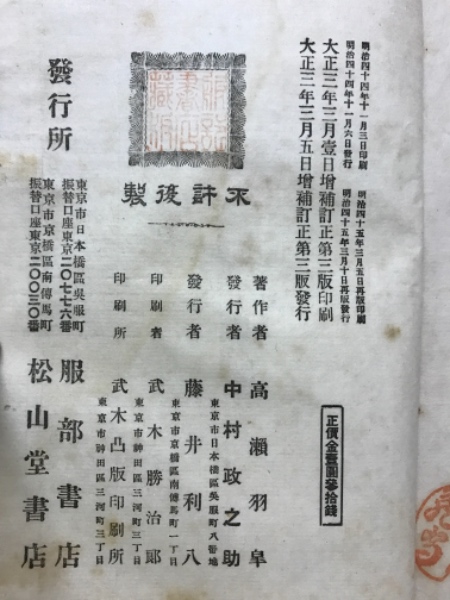 明治四十四年十一月三日印刷
明治四十四年十一月六日發行
明治四十五年三月五日再版印刷
明治四十五年三月十日再版發行
大正三年三月壹日增補訂正第三版印刷
大正三年三月五日增補訂正第三版發行
正價金壹圓參拾錢
不許複製
著作者 高瀨羽皐
發行者 中村政之助
東京市日本橋區吳服町八番地
發行者 藤井利八
東京市京橋區南傳馬町一丁目
印刷者 武木勝治郞
東京市神田區三河町三丁目
印刷所 武木凸版印刷所
東京市神田區三河町三丁目
發行所
東京市日本橋區吳服町
振替口座東京二〇七七六番
服部書店
東京市京橋區南傳馬町
振替口座東京二〇〇三〇番
松山堂書店